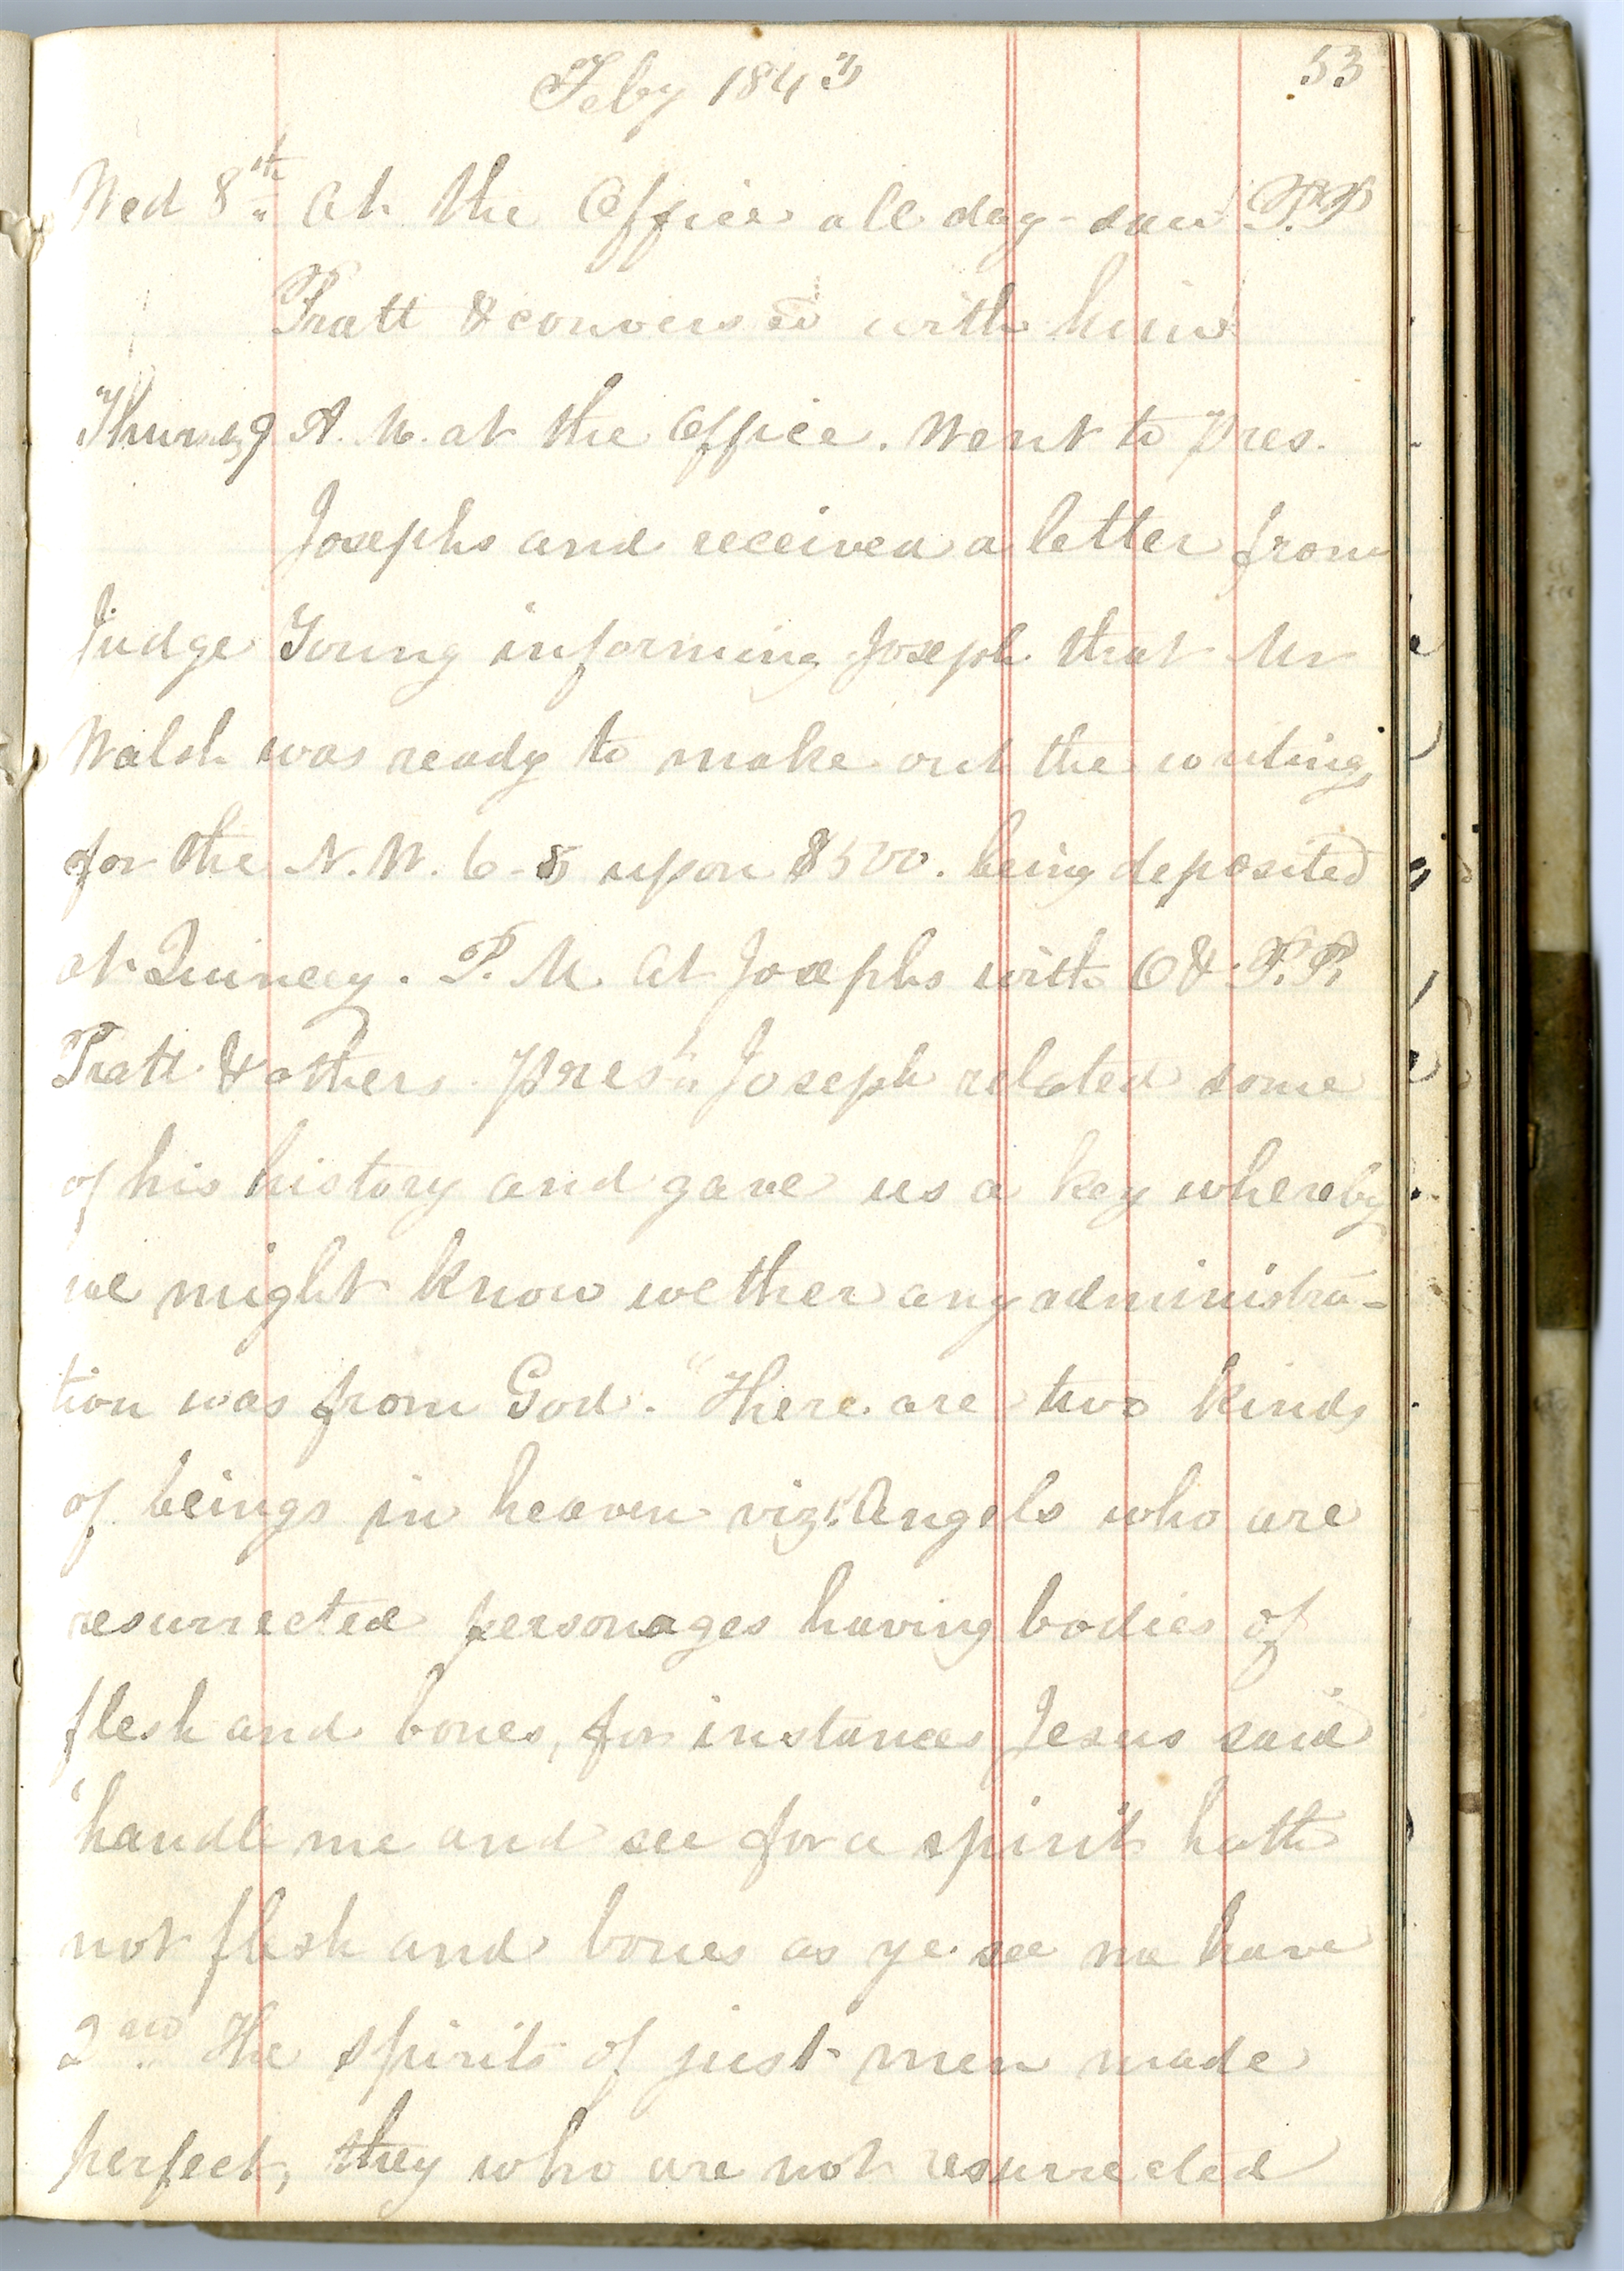 Feby 1843
53
Wed 8th At the Office all day - saw P.P.
Pratt & conversed with him
Thursdy 9 A.M. at the Office. Went to Pres.
Josephs and received a letter from
Judge Young informing Joseph that Mr
Walsh was ready to make out the writings
for the N.W. 6-8 upon $500. being deposited
at Quincy. P.M. At Josephs with O & P.P.
Pratt & others. Prest Joseph related some
of his history and gave us a key whereby
we might know wether any administra-
tion was from God. "There are two kinds
of beings in heaven viz: Angels who are
resurrected personages having bodies of
flesh and bones, for instance Jesus said
'handle me and see for a spirit hath
not flesh and bones as ye see me have
2nd The spirits of just men made
perfect, they who are not resurrected